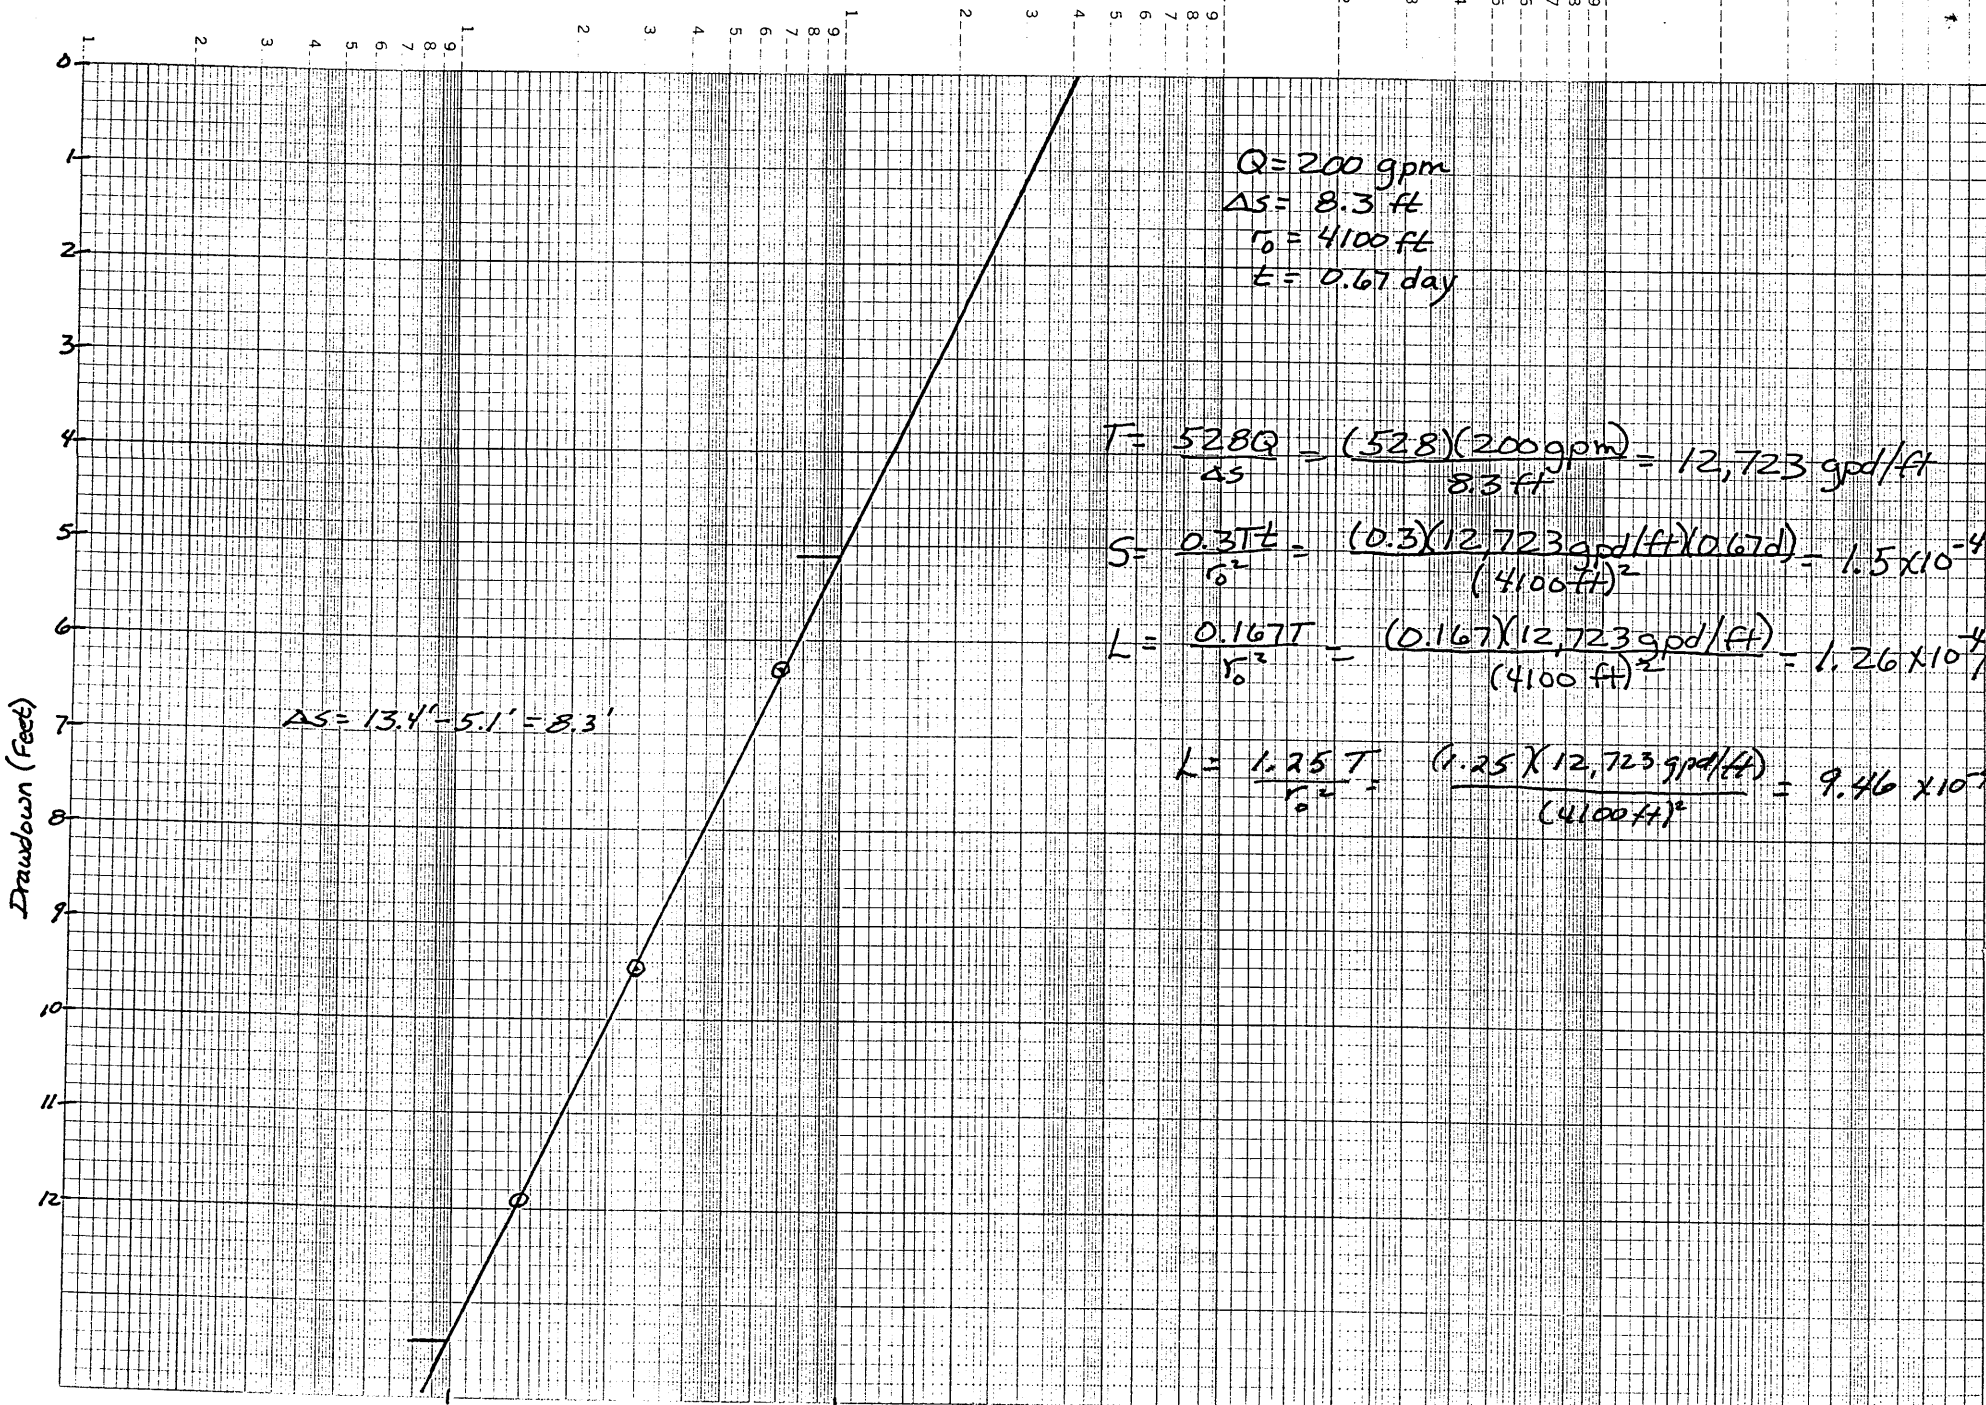 1 2 3 4 5 6 7 8 9 1 2 3 4 5 6 7 8 9 1 2 3 4 5 6 7 8 9
0
1
2
3
4
5
6
7
8
9
10
11
12
Drawdown (Feet)
Q = 200 gpm
Δs = 8.3 ft
r₀ = 4100 ft
t = 0.67 day
T = 528Q / Δs = (528)(200 gpm) / 8.3 ft = 12,723 gpd/ft
S = 0.3Tt / r₀² = (0.3)(12,723 gpd/ft)(0.67d) / (4100 ft)² = 1.5 x10⁻⁴
L = 0.167T / r₀² = (0.167)(12,723 gpd/ft) / (4100 ft)² = 1.26 x10⁻⁴
Δs = 13.4' - 5.1' = 8.3'
L = 1.25 T / r₀² = (1.25)(12,723 gpd/ft) / (4100 ft)² = 9.46 x10